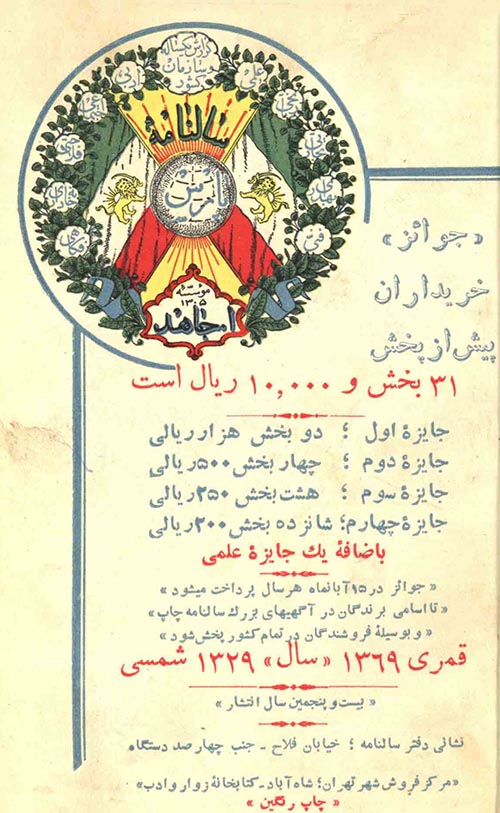 گزارش یکساله
و سازمان
کشور
علمی
ادبی
فنی
سالنامه
پارس
موسسه
۱۳۰۵
ا.جاهد
«جوائز»
خریداران
پیش از پخش
۳۱ بخش و ۱۰,۰۰۰ ریال است
جایزهٔ اول ؛ دو بخش هزار ریالی
جایزهٔ دوم ؛ چهار بخش ۵۰۰ ریالی
جایزهٔ سوم ؛ هشت بخش ۲۵۰ ریالی
جایزهٔ چهارم؛ شانزده بخش ۲۰۰ ریالی
باضافهٔ یك جایزهٔ علمی
«جوائز در ۱۵ آبانماه هر سال پرداخت میشود»
«تا اسامی برندگان در آگهیهای بزرك سالنامه چاپ»
«و بوسیلهٔ فروشندگان در تمام کشور پخش شود»
قمری ۱۳۶۹ «سال» ۱۳۲۹ شمسی
«بیست و پنجمین سال انتشار»
نشانی دفتر سالنامه ؛ خیابان فلاح - جنب چهار صد دستگاه
«مرکز فروش شهر تهران؛ شاه آباد - کتابخانهٔ زوار و ادب»
«چاپ رنگین»